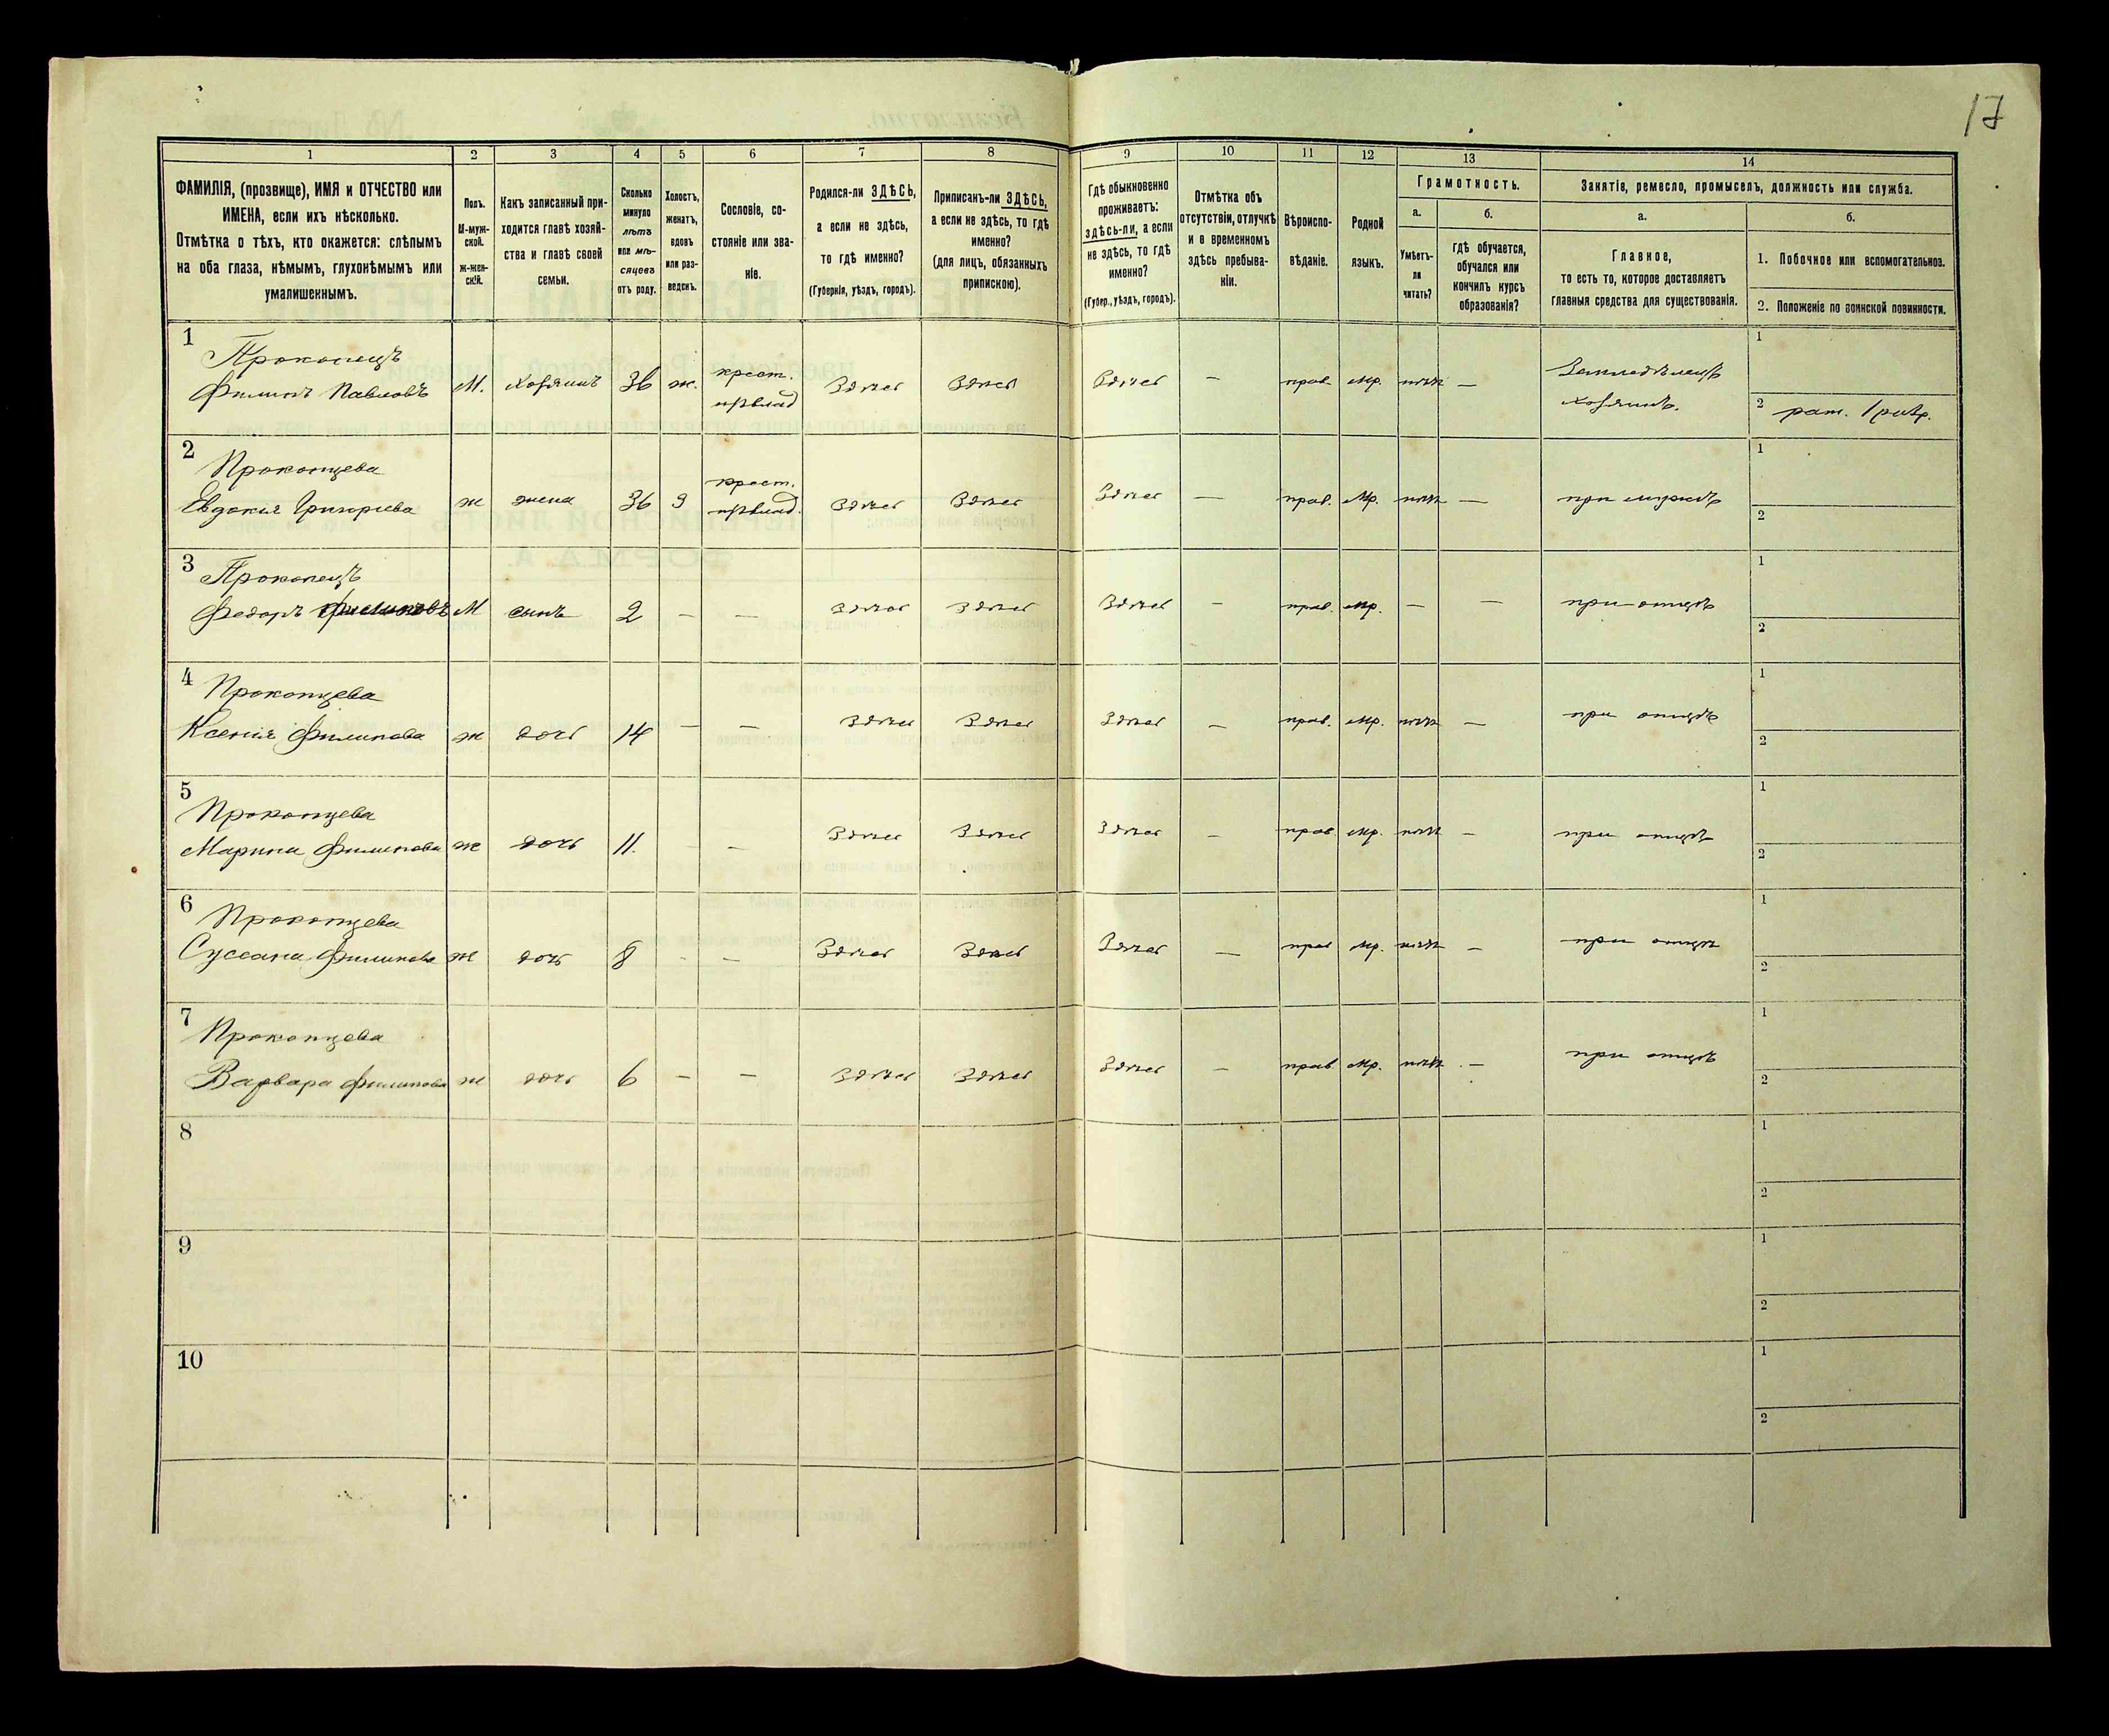 17
1 2 3 4 5 6 7 8 9 10 11 12 13 14
ФАМИЛІЯ, (прозвище), ИМЯ и ОТЧЕСТВО или
ИМЕНА, если ихъ нѣсколько.
Отмѣтка о тѣхъ, кто окажется: слѣпымъ
на оба глаза, нѣмымъ, глухонѣмымъ или
умалишеннымъ.
Полъ.
М-муж-
ской.
Ж-жен-
скій.
Какъ записанный при-
ходится главѣ хозяй-
ства и главѣ своей
семьи.
Сколько
минуло
лѣтъ
или мѣ-
сяцевъ
отъ роду.
Холостъ,
женатъ,
вдовъ
или раз-
веденъ.
Сословіе, со-
стояніе или зва-
ніе.
Родился-ли ЗДѢСЬ,
а если не здѣсь,
то гдѣ именно?
(Губернія, уѣздъ, городъ).
Приписанъ-ли ЗДѢСЬ,
а если не здѣсь, то гдѣ
именно?
(для лицъ, обязанныхъ
припискою).
Гдѣ обыкновенно
проживаетъ:
здѣсь-ли, а если
не здѣсь, то гдѣ
именно?
(Губер., уѣздъ, городъ).
Отмѣтка объ
отсутствіи, отлучкѣ
и о временномъ
здѣсь пребыва-
ніи.
Вѣроиспо-
вѣданіе.
Родной
языкъ.
Грамотность.
а.
Умѣетъ-
ли
читать?
б.
гдѣ обучается,
обучался или
кончилъ курсъ
образованія?
Занятіе, ремесло, промыселъ, должность или служба.
а.
Главное,
то есть то, которое доставляетъ
главныя средства для существованія.
б.
1. Побочное или вспомогательное.
2. Положеніе по воинской повинности.
1 Прокопецъ крест. Земледѣлецъ 1
Филипъ Павловъ М. хозяинъ 36 ж. Здѣсь Здѣсь Здѣсь — прав. мр. нѣтъ — хозяинъ. 2 рат. 1 разр.
2 Прокопцева крест. 1
Евдокія Григорьева ж жена 36 З Здѣсь Здѣсь Здѣсь — прав. мр. нѣтъ — при мужѣ 2
3 Прокопецъ 1
Федоръ Филиповъ М сынъ 2 — — Здѣсь Здѣсь Здѣсь — прав. мр. — — при отцѣ 2
4 Прокопцева 1
Ксенія Филипова ж дочь 14 — — Здѣсь Здѣсь Здѣсь — прав. мр. нѣтъ — при отцѣ 2
5 Прокопцева 1
Марина Филипова ж дочь 11. - — Здѣсь Здѣсь Здѣсь — прав. мр. нѣтъ — при отцѣ 2
6 Прокопцева 1
Суссана Филипова ж дочь 8 - — Здѣсь Здѣсь Здѣсь — прав мр. нѣтъ — при отцѣ 2
7 Прокопцева 1
Варвара Филипова ж дочь 6 — — Здѣсь Здѣсь Здѣсь — прав мр. нѣтъ — при отцѣ 2
8 1
2
9 1
2
10 1
2